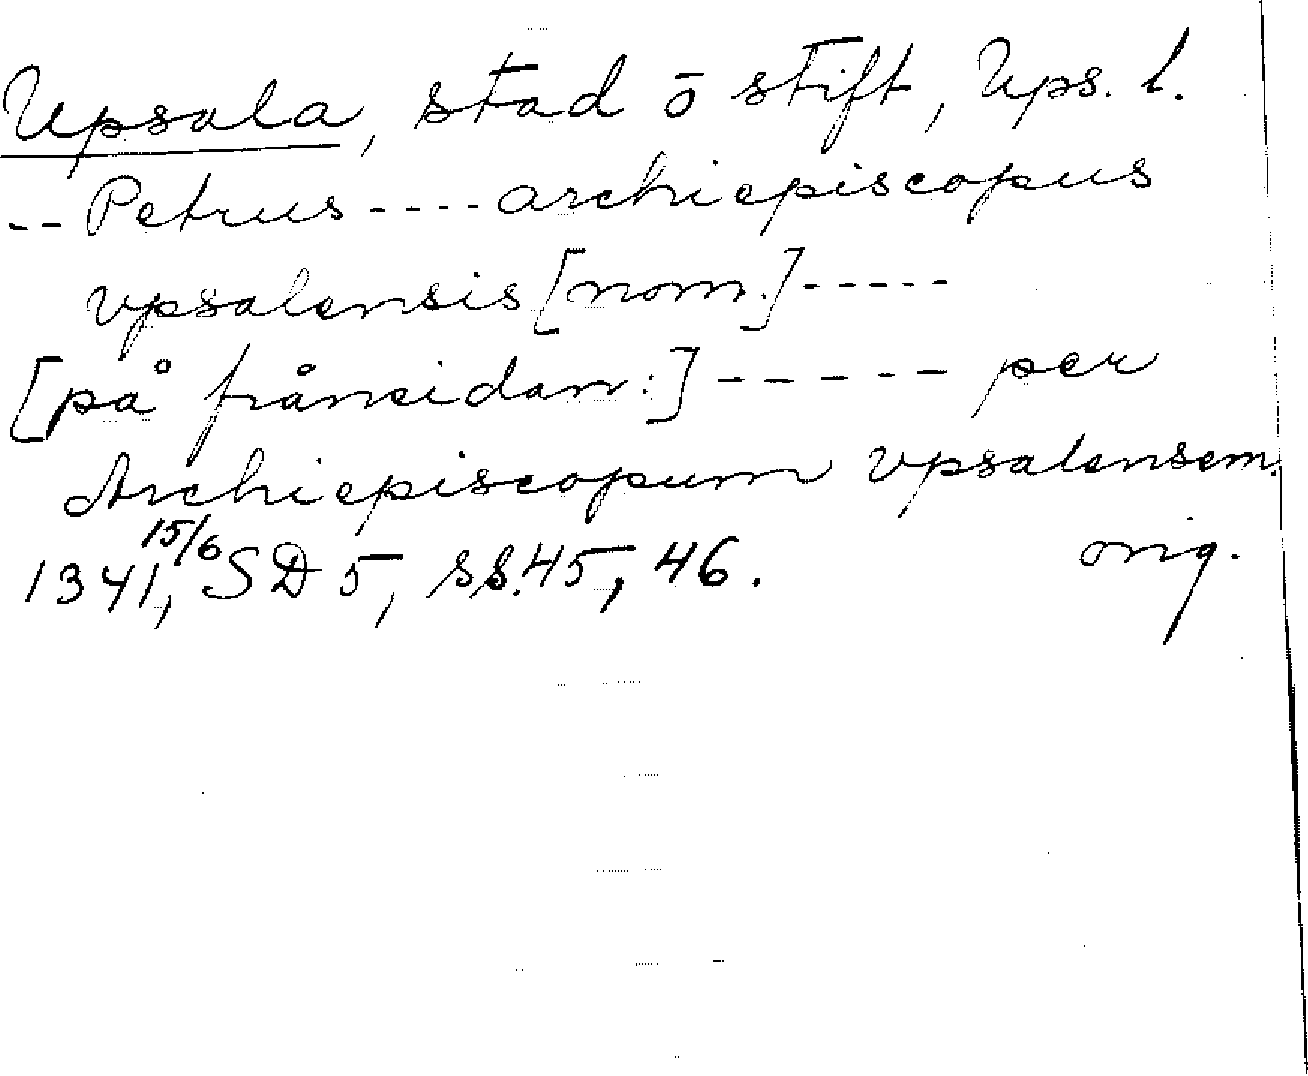 Upsala, stad ō stift, Ups. l.
-- Petrus ---- archiepiscopus
vpsalensis [nom.] -----
[på frånsidan:] ------ per
Archiepiscopum vpsalensem.
1341, 15/6 SD 5, ss. 45, 46. orig.